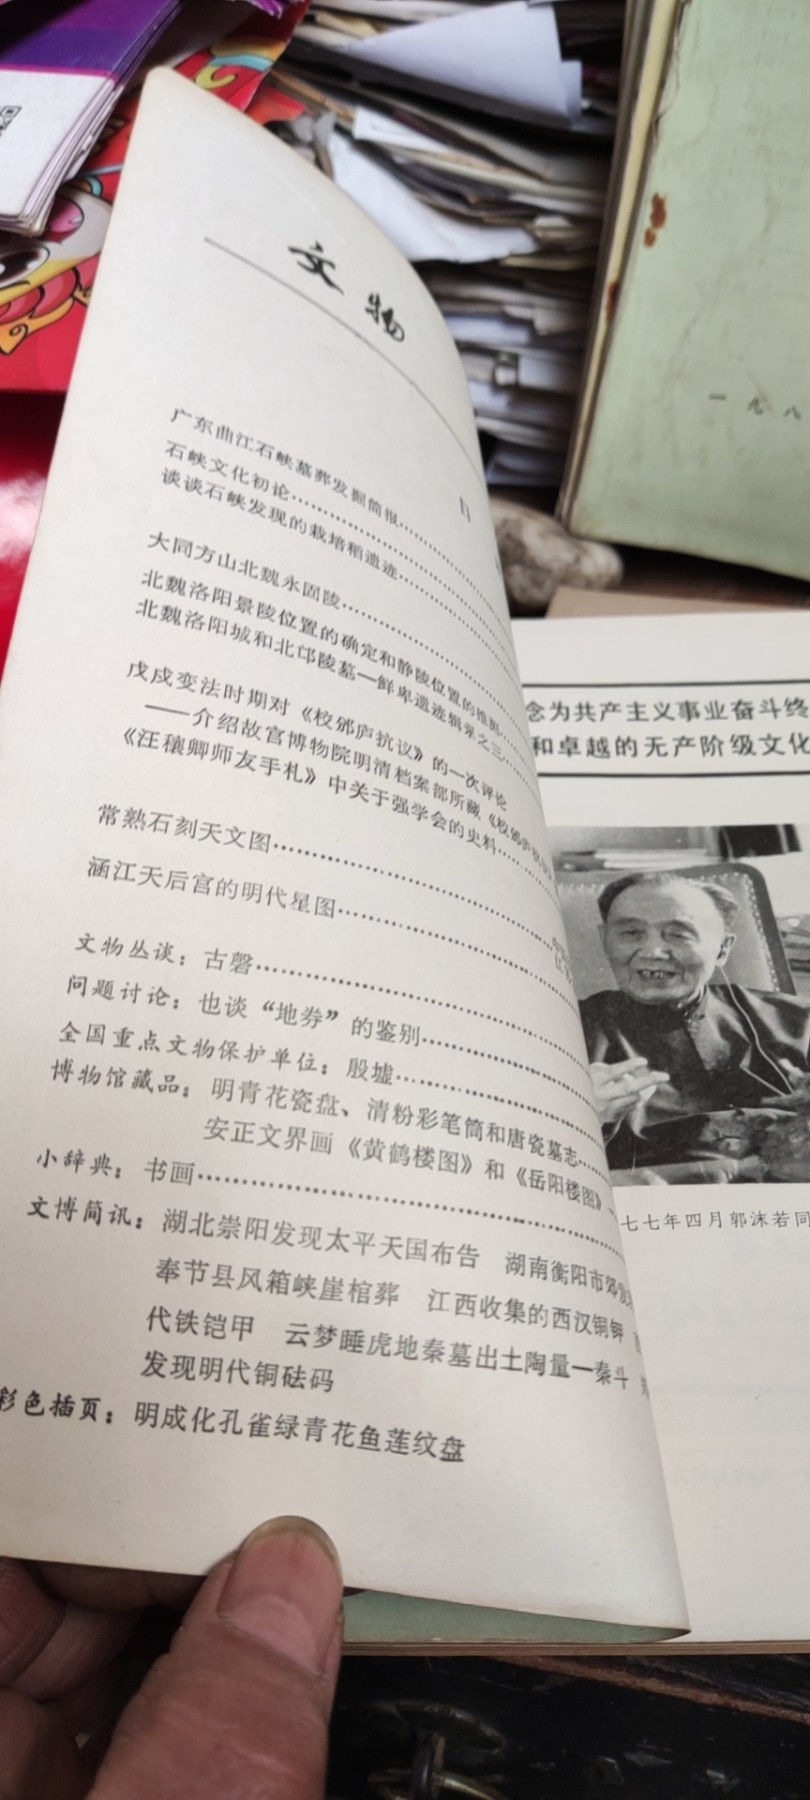 文物
目
广东曲江石峡墓葬发掘简报
石峡文化初论
谈谈石峡发现的栽培稻遗迹
大同方山北魏永固陵
北魏洛阳景陵位置的确定和静陵位置的推测
北魏洛阳城和北邙陵墓—鲜卑遗迹辑录之三
戊戌变法时期对《校邠庐抗议》的一次评论
——介绍故宫博物院明清档案部所藏《校邠庐抗议》
《汪穰卿师友手札》中关于强学会的史料
常熟石刻天文图
涵江天后宫的明代星图
文物丛谈：古磬
问题讨论：也谈“地券”的鉴别
全国重点文物保护单位：殷墟
博物馆藏品：明青花瓷盘、清粉彩笔筒和唐瓷墓志
安正文界画《黄鹤楼图》和《岳阳楼图》
小辞典：书画
文博简讯：湖北崇阳发现太平天国布告　湖南衡阳市郊发
奉节县风箱峡崖棺葬　江西收集的西汉铜钾
代铁铠甲　云梦睡虎地秦墓出土陶量—秦斗
发现明代铜砝码
彩色插页：明成化孔雀绿青花鱼莲纹盘
念为共产主义事业奋斗终
和卓越的无产阶级文化
七七年四月郭沫若同
一九八